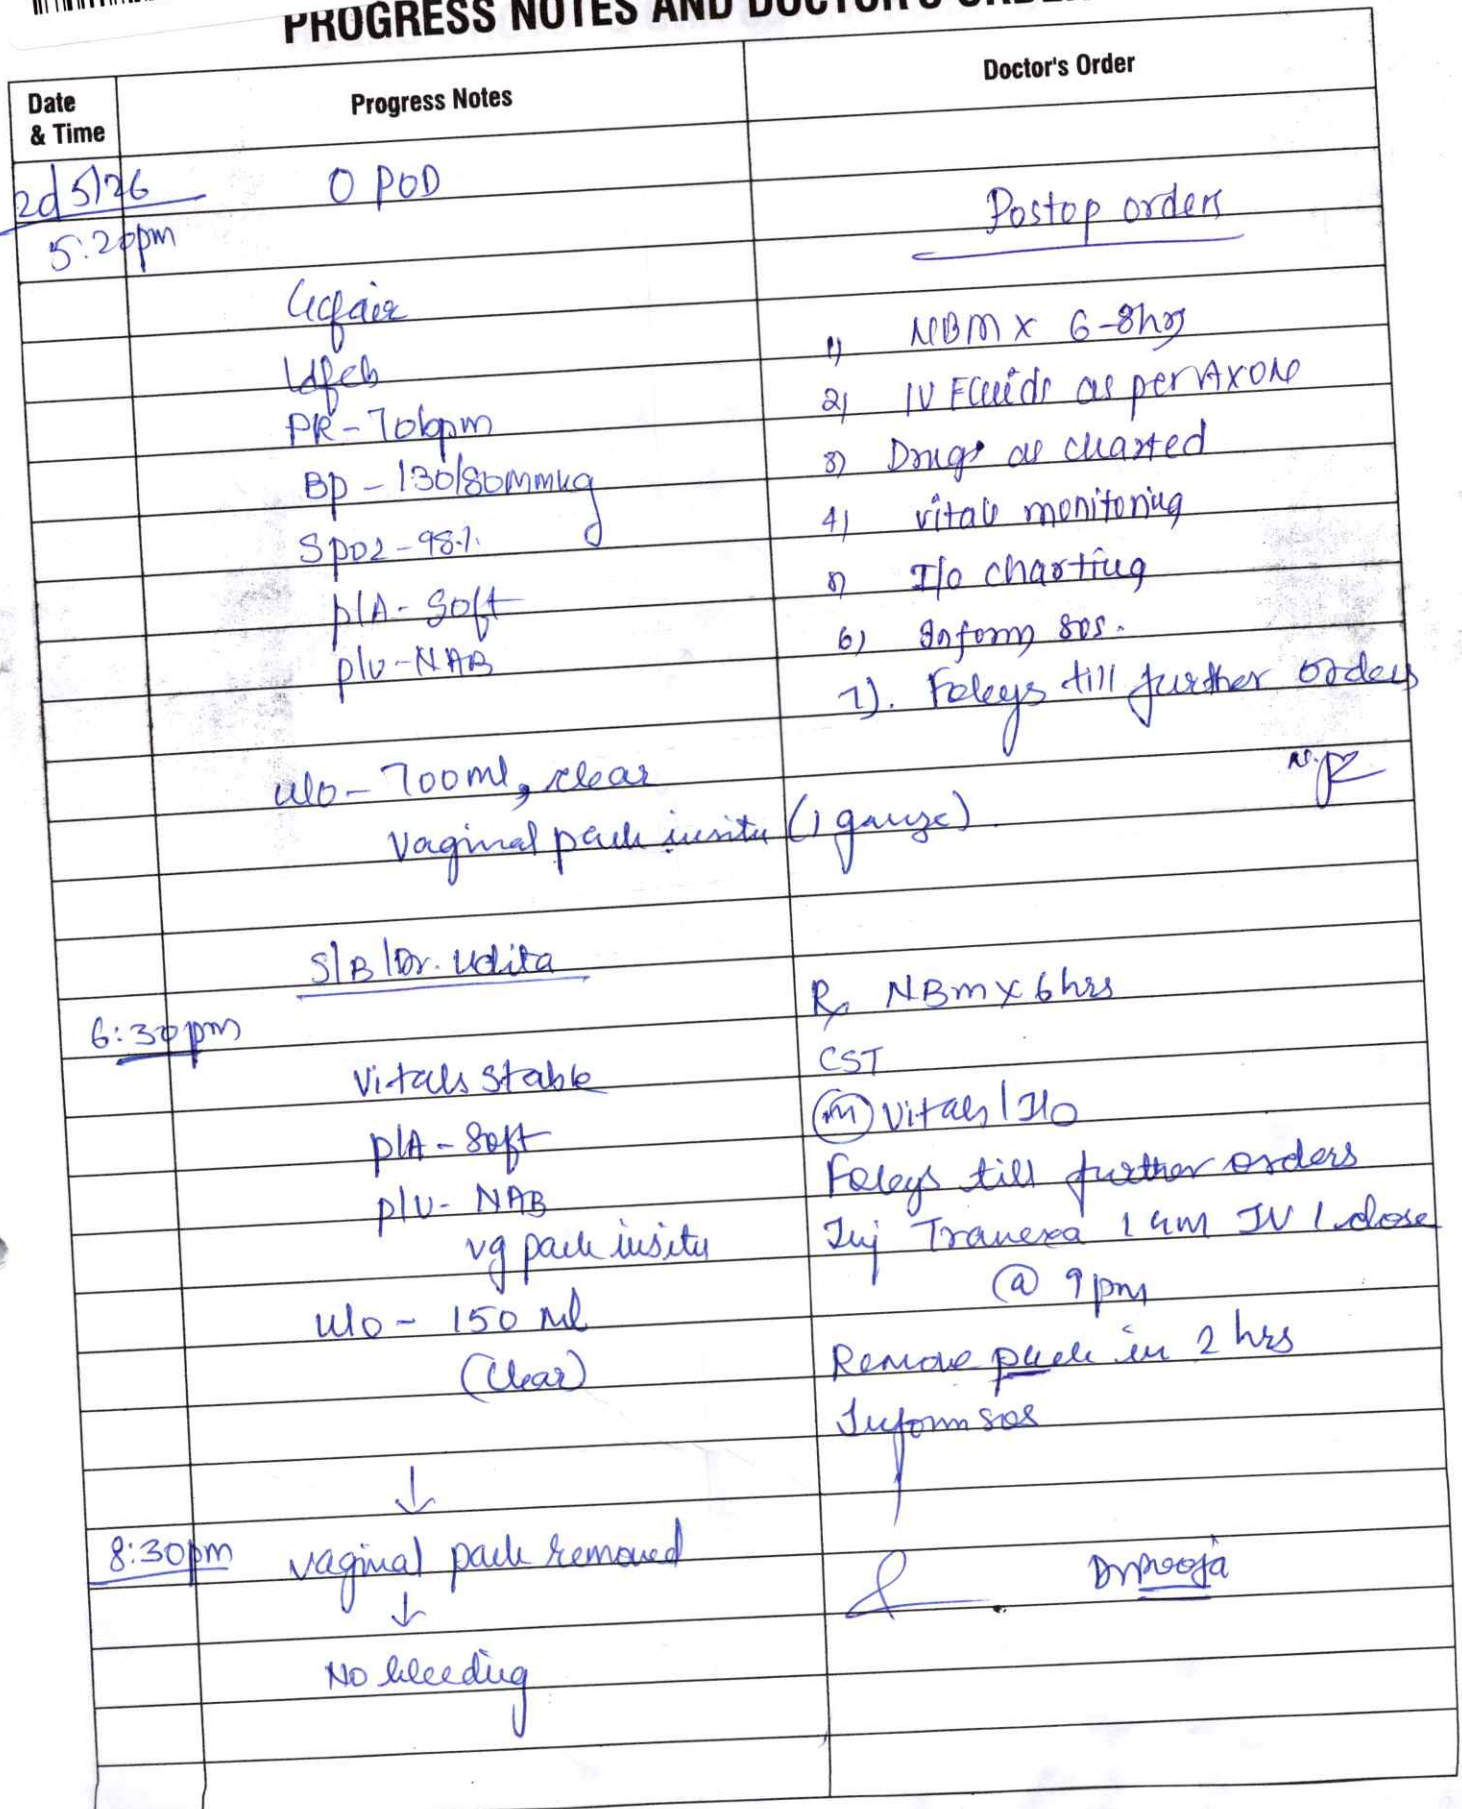 PROGRESS NOTES AND DOCTOR'S ORDER
Date & Time
Progress Notes
Doctor's Order
5/26
0 POD
5:20pm
Postop orders
GC fair
1) NBM x 6-8hrs
2) IV Fluids as per
PR - 70bpm
3) Drugs as charted
BP - 130/80mmHg
4) vitals monitoring
SpO2 - 98%
5) I/O charting
P/A - Soft
6) Inform sos.
P/V - NAB
7). Foleys till further orders
U/O - 700ml, clear
Vaginal pack insitu (1 gauze)
S/B/Dr. Udita
6:30pm
Rx NBM x 6 hrs
Vitals stable
CST
P/A - Soft
(m) Vitals / I/O
P/V - NAB
Foleys till further orders
vg pack insitu
Inj Tranexa 1 gm IV 1 dose
@ 9pm
U/O - 150 ml
(Clear)
Remove pack in 2 hrs
Inform sos
↓
8:30pm
vaginal pack removed
Dr Pooja
↓
No bleeding